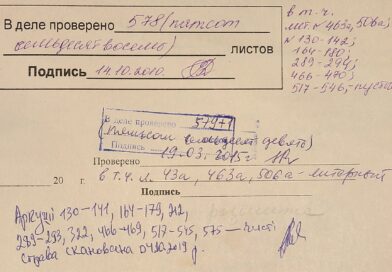 В деле проверено 578 (пятсот
семьдесят восемь) листов
Подпись 14.10.2010.
в т. ч.
лит. N 463а, 506а,
N 130-142;
164-180;
289-294;
466-470;
517-546,-пустые
В деле проверено 579+1
(пятьсот семьдесят девять)
Подпись 19.03.2015г.
Проверено
в т.ч. л. 43а, 463а, 506а - литерные
20 г.
Подпись
Аркуші 130-141, 164-179, 212,
289-293, 322, 466-469, 517-545, 575 — чисті
справа сканована 04.10.2019 р.